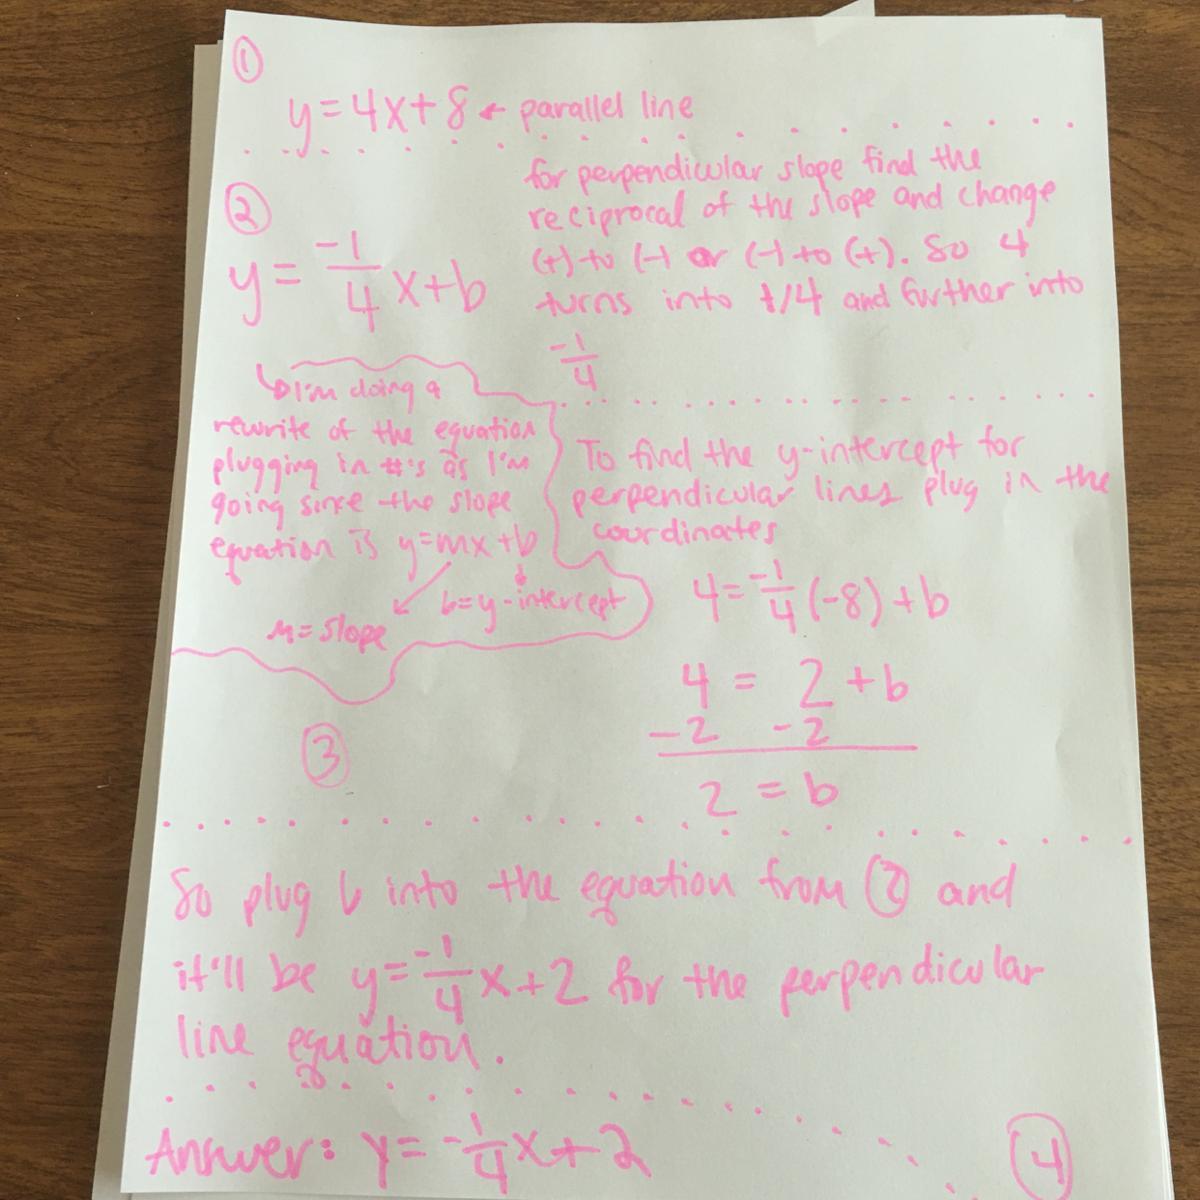 ①
y=4x+8 ← parallel line
②
y= -1/4 x+b
for perpendicular slope find the
reciprocal of the slope and change
(+) to (-) or (-) to (+). So 4
turns into 1/4 and further into
-1/4
↳I'm doing a
rewrite of the equation
plugging in #'s as I'm
going since the slope
equation is y=mx+b
m=slope
b=y-intercept
To find the y-intercept for
perpendicular lines plug in the
coordinates
4=-1/4(-8)+b
4 = 2+b
-2 -2
2 = b
③
So plug b into the equation from ② and
it'll be y=-1/4x+2 for the perpendicular
line equation.
Answer: y=-1/4x+2
④